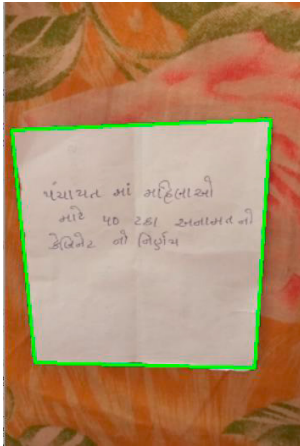 પંચાયત માં મહિલાઓ
માટે ૫૦ ટકા અનામત નો
કેબિનેટ નો નિર્ણય